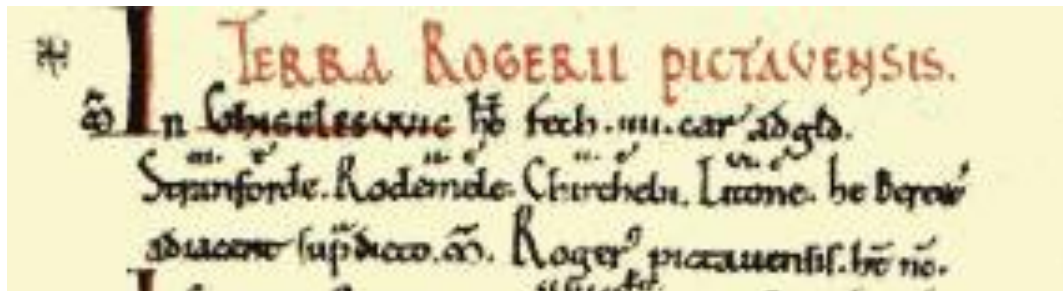 TERRA ROGERII PICTAVENSIS.
M̃ In Ghigeleswic hb̃ Fech .iiii. car' ad gld.
iii. c' ii. c' ii. c' vi. c'
Stranforde. Rodemele. Chirchebi. Litone. he Berew'
adiacent sup̃dicto .M̃. Roger' pictauensis. ht̃ nc̃.